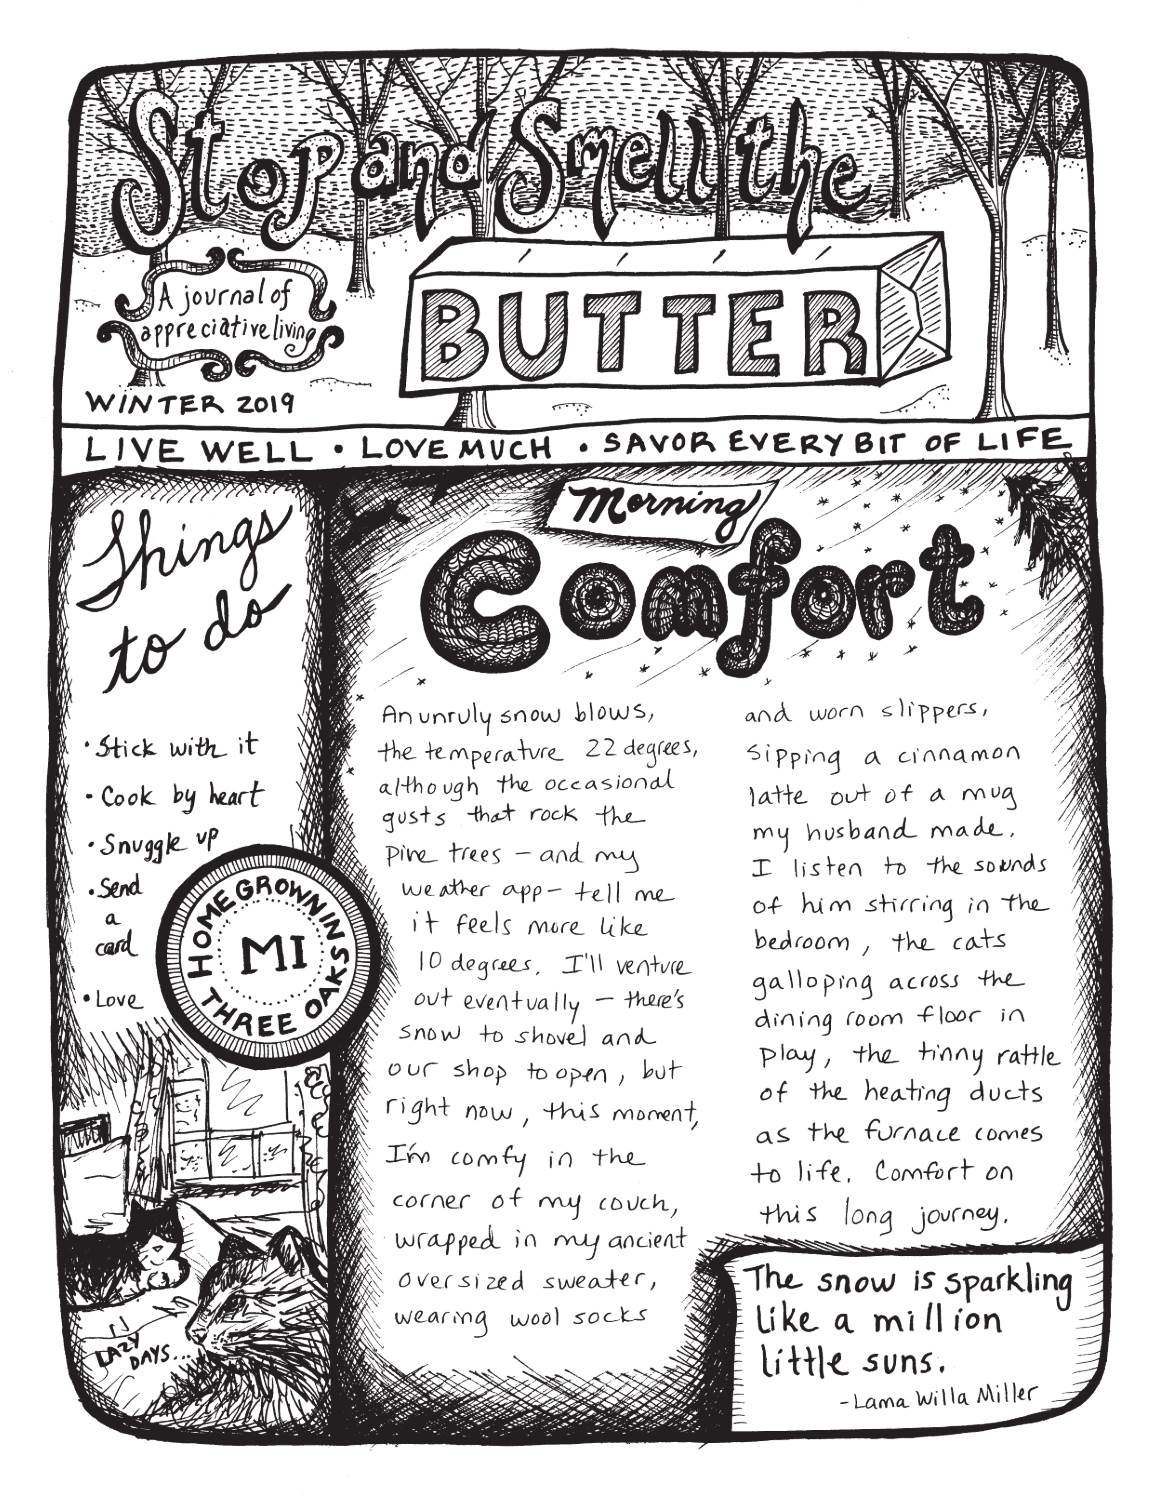 Stop and Smell the
BUTTER
A journal of
appreciative living
WINTER 2019
LIVE WELL • LOVE MUCH • SAVOR EVERY BIT OF LIFE
Things
to do
• Stick with it
• Cook by heart
• Snuggle up
• Send
a
card
• Love
HOMEGROWN IN
MI
THREE OAKS
LAZY
DAYS...
Morning
Comfort
An unruly snow blows,
the temperature 22 degrees,
although the occasional
gusts that rock the
pine trees – and my
weather app – tell me
it feels more like
10 degrees. I'll venture
out eventually – there's
snow to shovel and
our shop to open, but
right now, this moment,
I'm comfy in the
corner of my couch,
wrapped in my ancient
oversized sweater,
wearing wool socks
and worn slippers,
sipping a cinnamon
latte out of a mug
my husband made.
I listen to the sounds
of him stirring in the
bedroom, the cats
galloping across the
dining room floor in
play, the tinny rattle
of the heating ducts
as the furnace comes
to life. Comfort on
this long journey.
The snow is sparkling
like a million
little suns.
-Lama Willa Miller